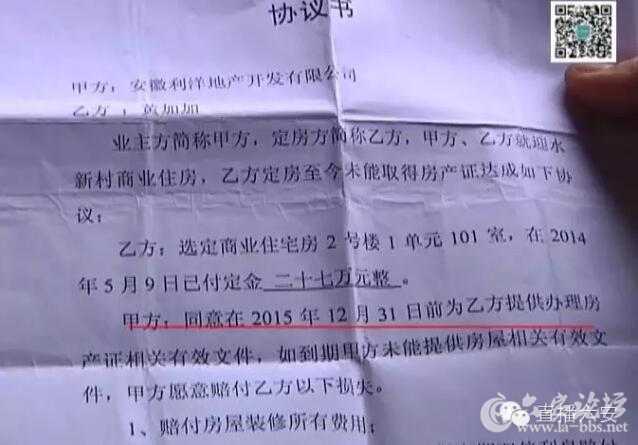 协议书
甲方：安徽利洋地产开发有限公司
乙方：黄加加
业主方简称甲方，定房方简称乙方，甲方、乙方就迎水
新村商业住房，乙方定房至今未能取得房产证达成如下协
议：
乙方：选定商业住宅房2号楼1单元101室，在2014
年5月9日已付定金 二十七万元整 。
甲方：同意在2015年12月31日前为乙方提供办理房
产证相关有效文件，如到期甲方未能提供房屋相关有效文
件，甲方愿意赔付乙方以下损失。
1、赔付房屋装修所有费用；
直播六安
六安论坛
www.la-bbs.net